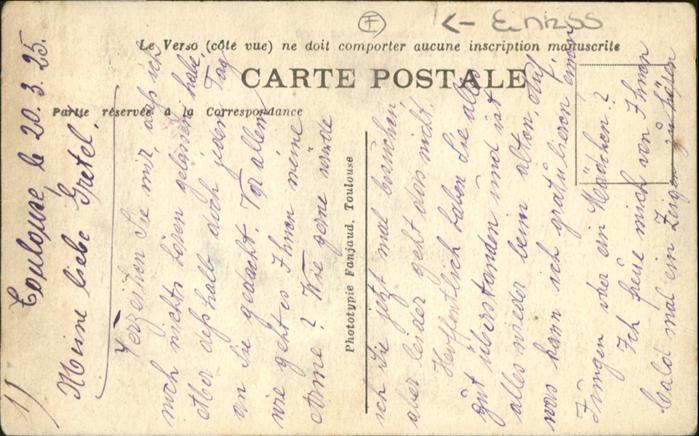 Le Verso (côté vue) ne doit comporter aucune inscription manuscrite
CARTE POSTALE
Partie réservée à la Correspondance
Phototypie Fanjaud, Toulouse
1)
Toulouse le 20.3.25.
Meine liebe Gretel,
Verzeihen Sie mir, daß ich
noch nichts hören gelassen habe,
Aber deßhalb doch jeden Tag
an Sie gedacht. Vor allem
wie geht es Ihnen meine
Arme? Wie gerne würde
ich Sie jetzt mal besuchen,
aber leider geht das nicht.
Hoffentlich haben Sie alles
gut überstanden und ist
alles wieder beim alten. Auf
was kann ich gratulieren einen
Jungen oder ein Mädchen?
Ich freue mich von Ihnen
bald mal ein Zeugen zu